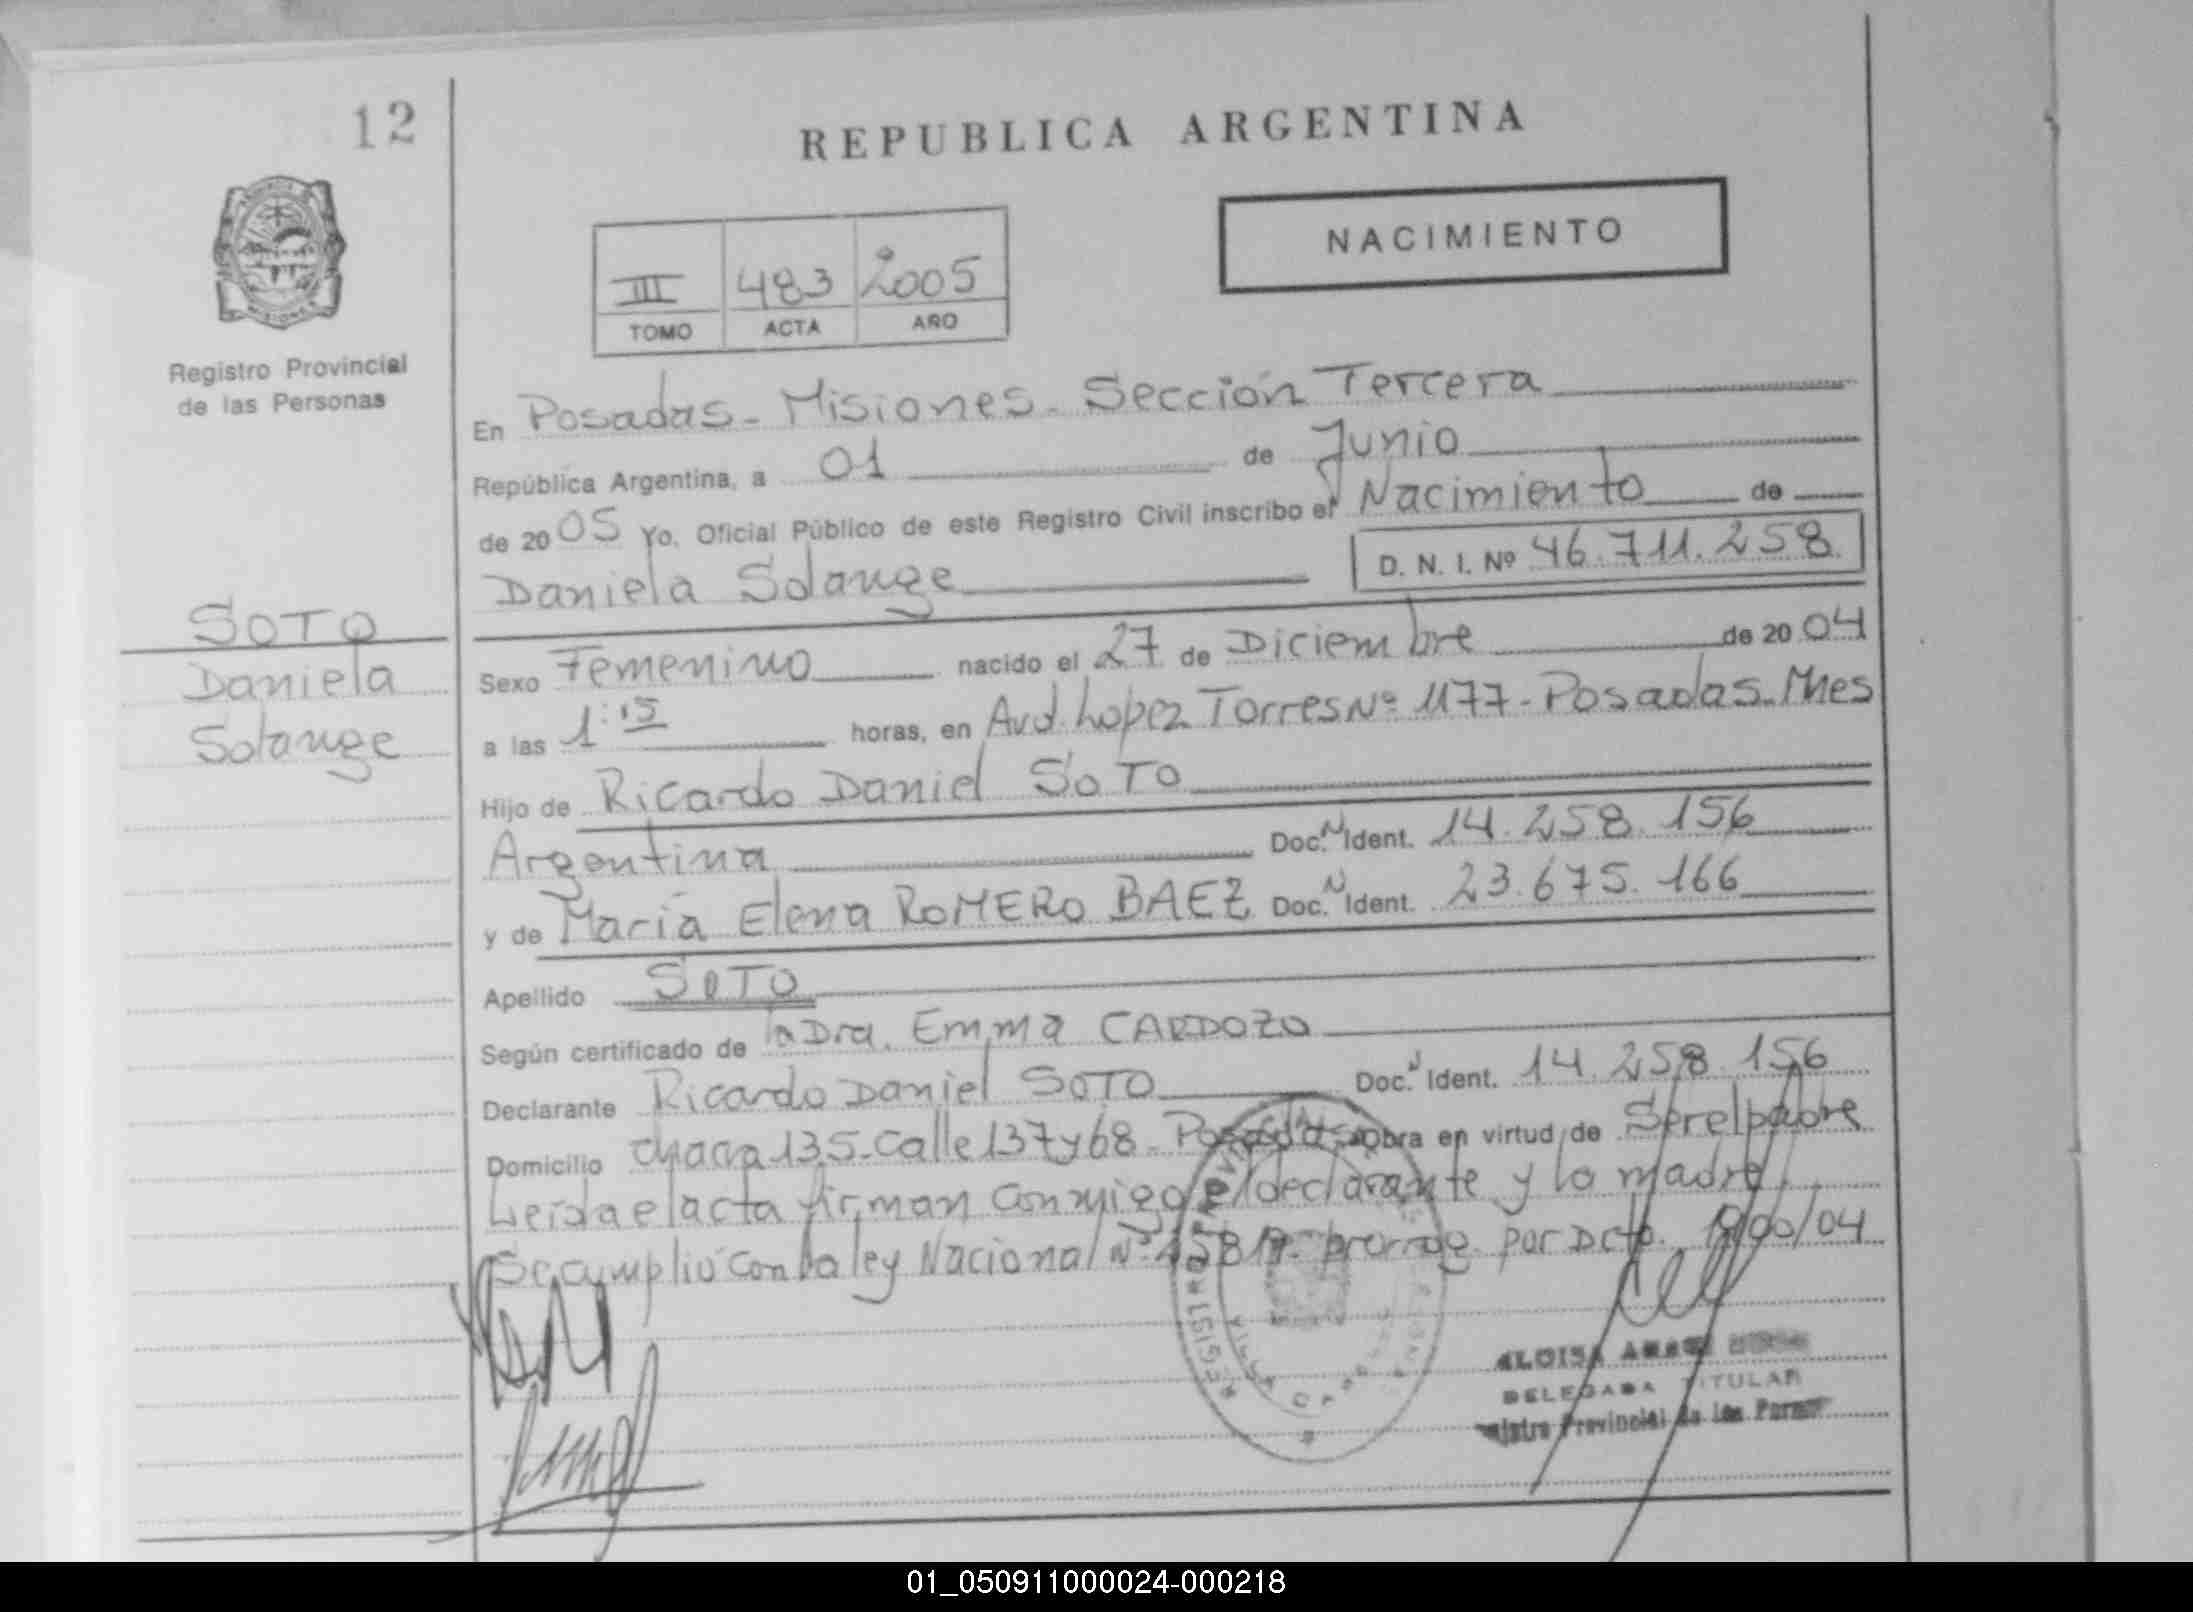 12
REPUBLICA ARGENTINA
NACIMIENTO
III 483 2005
TOMO ACTA AÑO
Registro Provincial
de las Personas
En Posadas - Misiones - Sección Tercera
República Argentina, a 01 de Junio
de 2005 Yo, Oficial Público de este Registro Civil inscribo el Nacimiento de
Daniela Solange D. N. I. Nº 46.711.258
SOTO
Daniela
Solange
Sexo Femenino nacido el 27 de Diciembre de 2004
a las 1:15 horas, en Avd. Lopez Torres Nº 1177 - Posadas - Mnes
Hijo de Ricardo Daniel SOTO
Argentina Doc. N Ident. 14.258.156
y de María Elena ROMERO BAEZ Doc. N Ident. 23.675.166
Apellido SOTO
Según certificado de la Dra. Emma CARDOZO
Declarante Ricardo Daniel SOTO Doc. Ident. 14.258.156
Domicilio chacra 135 - Calle 137 y 68 - Posadas obra en virtud de Ser el padre
Leida el acta firman conmigo el declarante y la madre
Se cumplió con la ley Nacional Nº por Dcto. 1900/04
REGISTRO
VILLA CABELLO
DELEGADA TITULAR
Provincial de las
01_050911000024-000218